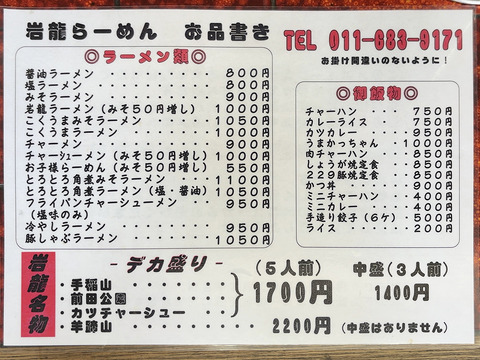 岩龍らーめん　お品書き
TEL 011-683-9171
お掛け間違いのないように！
◎ラーメン類◎
醤油ラーメン・・・・・・・・・800円
塩ラーメン・・・・・・・・・・800円
みそラーメン・・・・・・・・・900円
岩龍ラーメン（みそ50円増し）・900円
こくうまみそラーメン・・・・・1050円
こくうまラーメン・・・・・・・1000円
チャーメン・・・・・・・・・・900円
チャーシューメン（みそ50円増し）1000円
お子様らーめん（みそ50円増し）・550円
とろとろ角煮みそラーメン・・・1100円
とろとろ角煮ラーメン（塩・醤油）1050円
フライパンチャーシューメン・・950円
（塩味のみ）
冷やしラーメン・・・・・・・・900円
豚しゃぶラーメン・・・・・・・1050円
◎御飯物◎
チャーハン・・・・・・750円
カレーライス・・・・・750円
カツカレー・・・・・・950円
うまかっちゃん・・・・1000円
肉チャーハン・・・・・850円
しょうが焼定食・・・・850円
229豚焼定食・・・・・850円
かつ丼・・・・・・・・900円
ミニチャーハン・・・・400円
ミニカレー・・・・・・400円
手造り餃子（6ケ）・・500円
ライス・・・・・・・・200円
岩龍名物
- デカ盛り -
（5人前）　中盛（3人前）
・手稲山
・前田公園
・カツチャーシュー
1700円　1400円
・羊蹄山・・・・・・・2200円（中盛はありません）